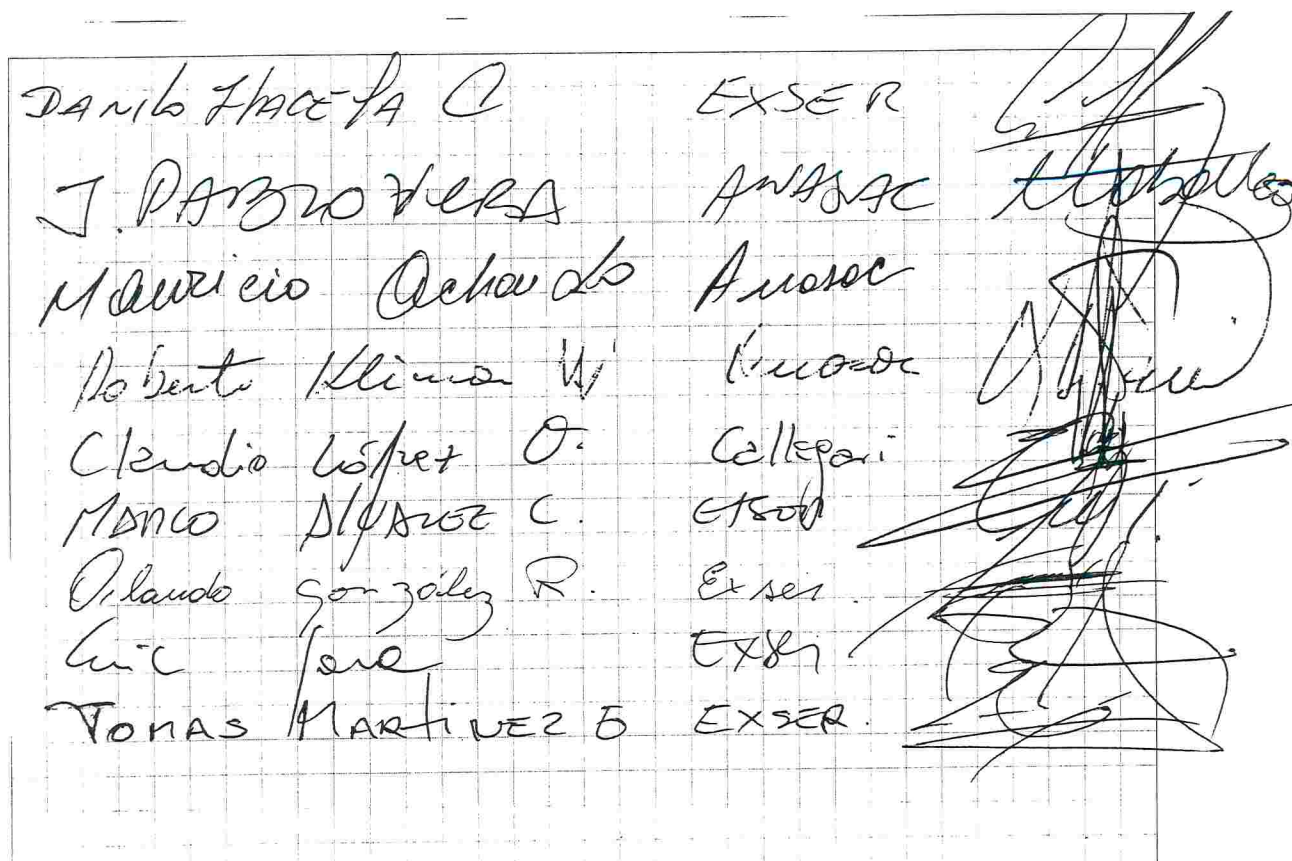 DANILO C EXSER
J. PABLO VERA ANASAC
Mauricio Achondo Anasac
Roberto Kliman W Anasac
Claudio López O. Callegari
MARCO ALVAREZ C.
Orlando González R. Exser.
Jara EXSER
TOMAS MARTINEZ EXSER.